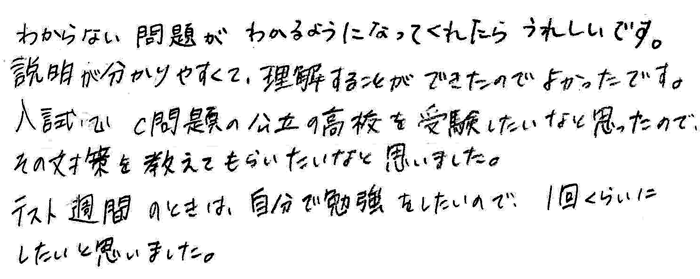 わからない問題がわかるようになってくれたらうれしいです。
説明が分かりやすくて、理解することができたのでよかったです。
入試で C問題の公立の高校を受験したいなと思ったので、
その対策を教えてもらいたいなと思いました。
テスト週間のときは、自分で勉強をしたいので、1回くらいに
したいと思いました。